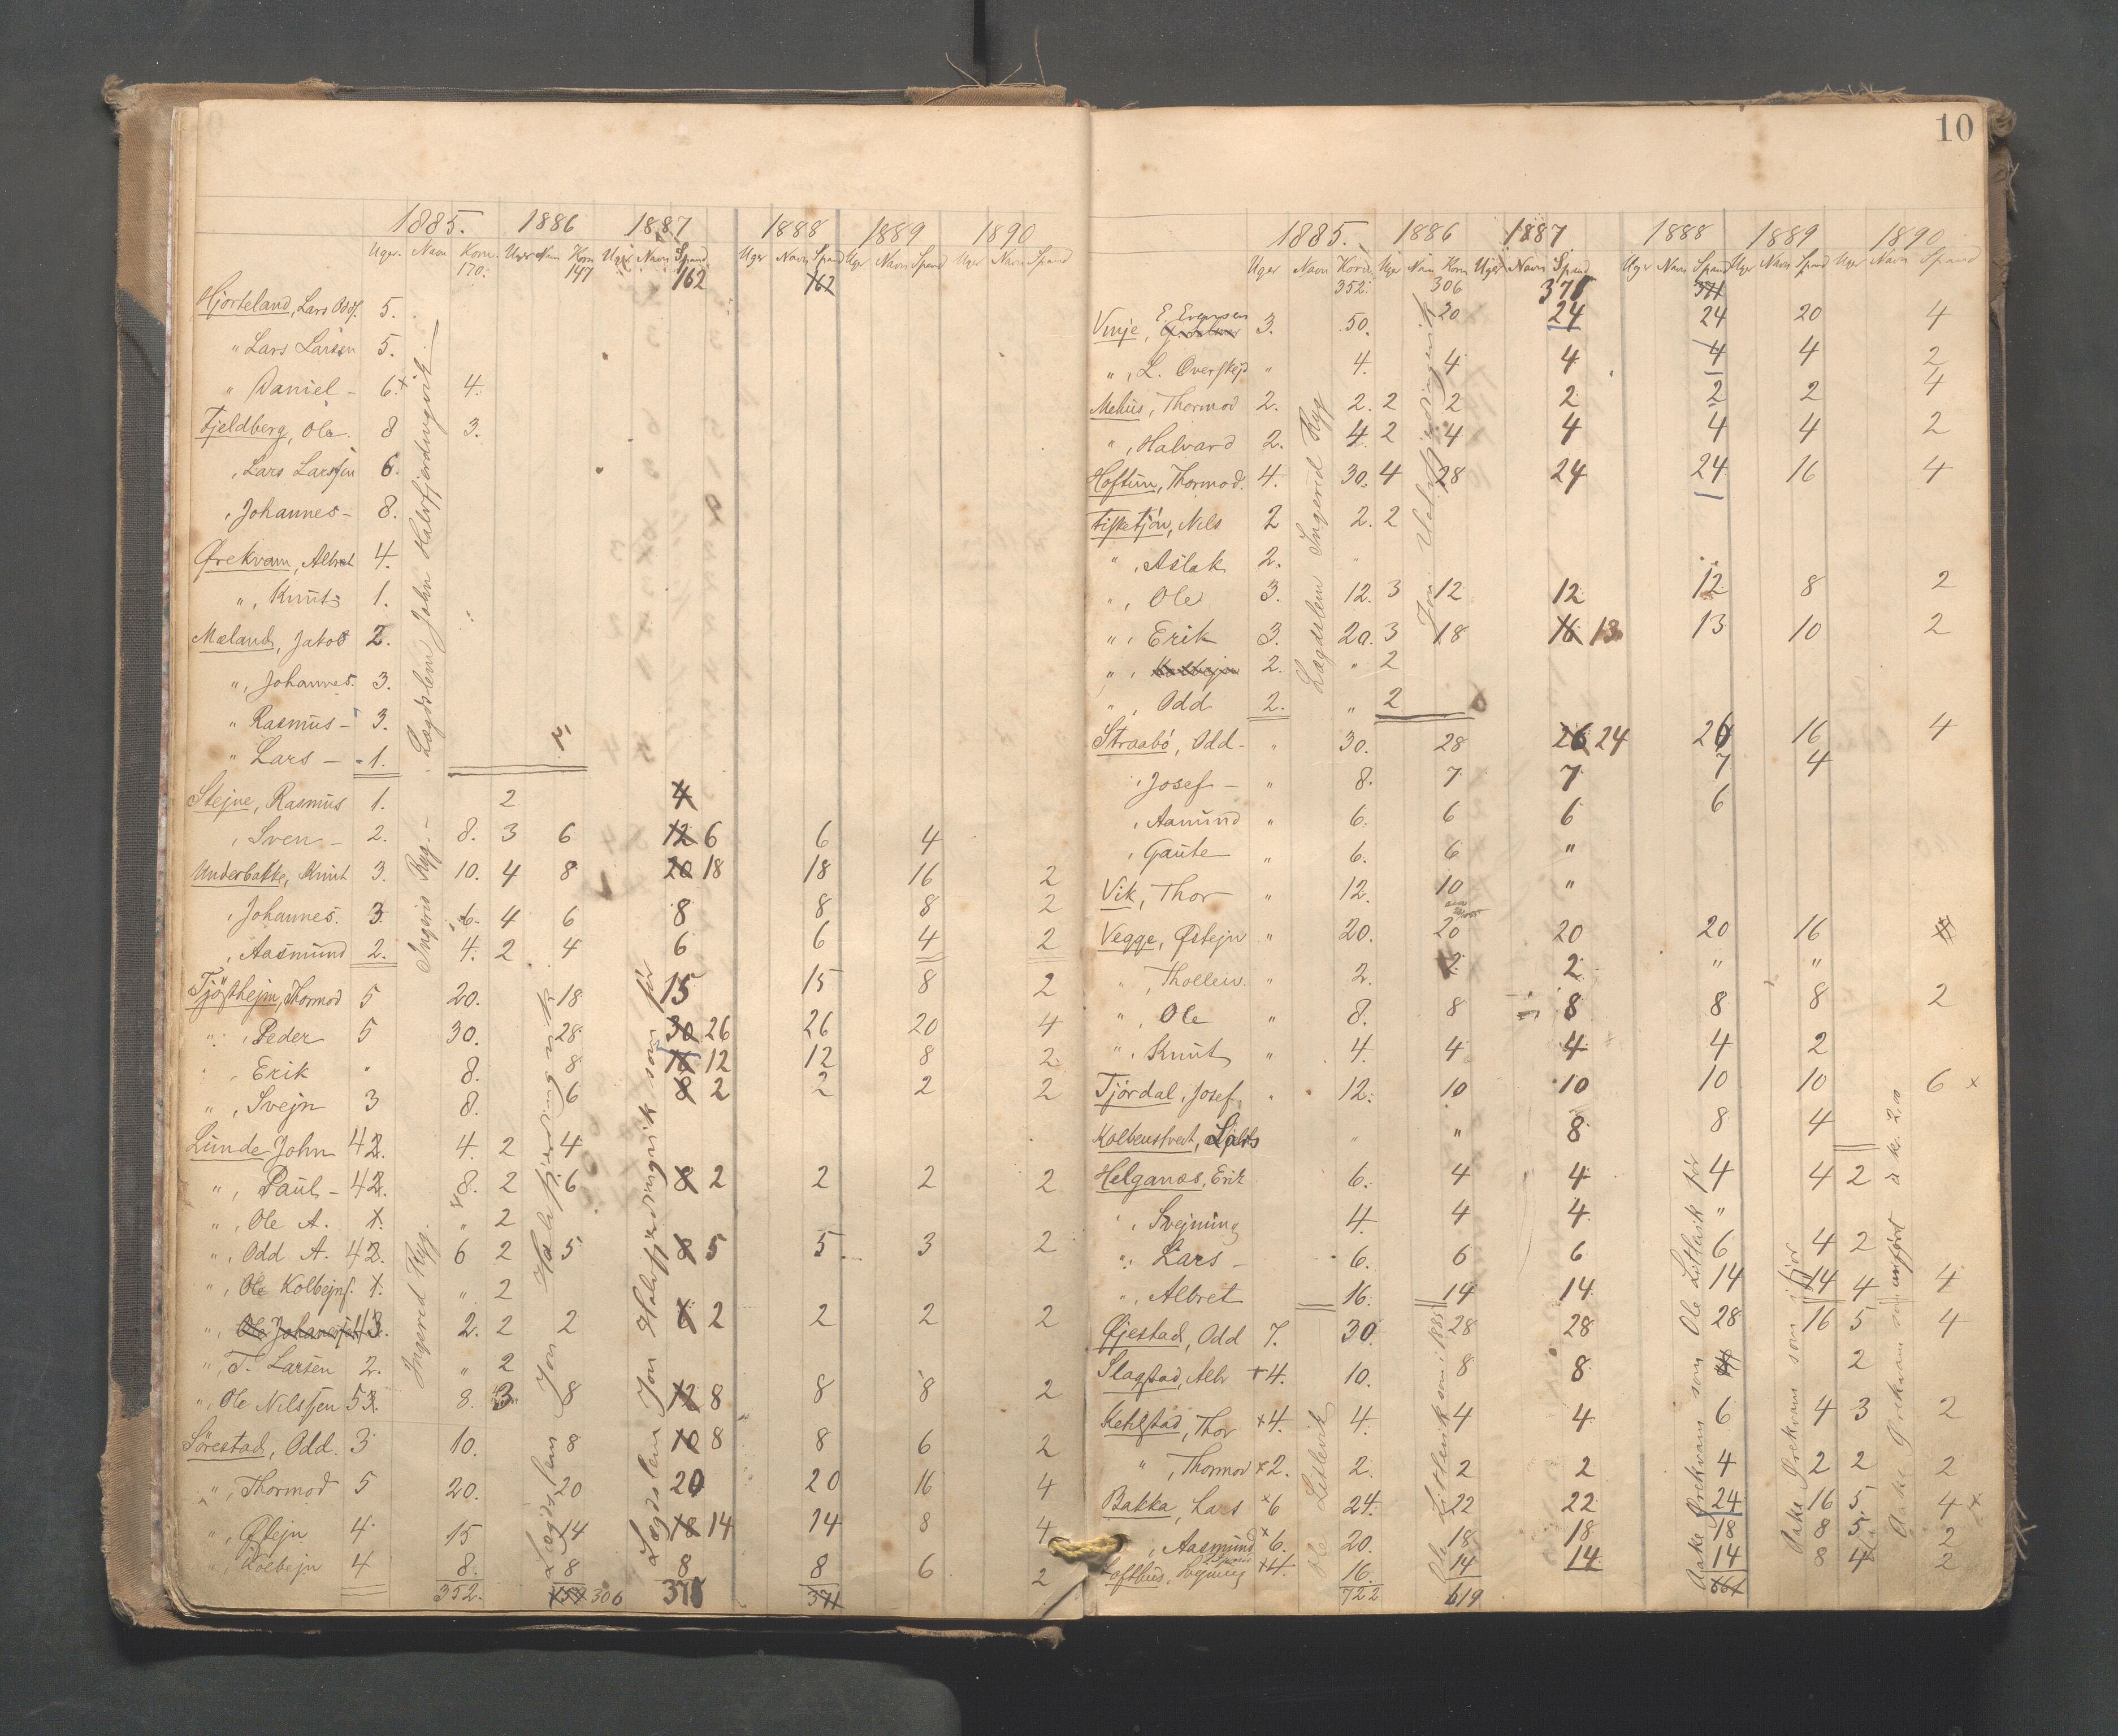 1885. 1886 1887 1888 1889 1890
Uger. Navn Korn. Uger Navn Korn Uger Navn Spand Uger Navn Spand Uger Navn Spand Uger Navn Spand
170. 147 162 162
Hjorteland, Lars Odds. 5.
" Lars Larsen 5.
" Daniel - 6. 4.
Fjeldberg, Ole. 8 3.
, Lars Larssen 6.
, Johannes - 8.
Ørekvam, Albret 4.
", Knut 1.
Mæland, Jakob 2.
", Johannes. 3.
" Rasmus - 3.
" Lars - 1.
Lægdslem John Halvfjerdingvik
Stejne, Rasmus 1. 2 4
, Sven - 2. 8. 3 6 12 6 6 4
Underbakke, Knut 3. 10. 4 8 20 18 18 16 2
, Johannes. 3 6. 4 6 8 8 8 2
, Aasmund 2. 4. 2 4 6 6 4 2
Ingerid Ryg. -
Tjøsthejm, Thormod 5 20. 18 15 15 8 2
" , Peder 5 30. 28 30 26 26 20 4
, Erik " 8. 8 16 12 12 8 2
", Svejn 3 8. 6 8 2 2 2 2
Lunde John 42. 4. 2 4
", Paul - 42. 8. 2 6 8 2 2 2 2
", Ole A. 1. " 2
", Odd A. 42. 6 2 5 8 5 5 3 2
", Ole Kolbejns. 1. " 2
", Ole Johannessen 43. 2. 2 2 6 2 2 2 2
", T. Larsen 2. " 2
", Ole Nilssen 53. 8. 3 8 12 8 8 8 2
Sørestad, Odd. 3 10. 8 10 8 8 6 2
", Thormod 5 20. 20 20 20 16 4
", Østejn 4 15 14 18 14 14 8 4
", Kolbejn 4 8. 8 8 8 6 2
352. 306 371 371
Ingerid Ryg.
Lægdslem Jon Halvfjerdingvik
Lægdslem Jon Halvfjerdingvik som før
10
1885. 1886 1887 1888 1889 1890
Uger Navn Korn. Uger Navn Korn Uger Navn Spand Uger Navn Spand Uger Navn Spand Uger Navn Spand
352. 306 371 371
E. Evensen
Vinje, 3. 50. 20 24 24 20 4
", L. Overskejd " 4. 4 4 4 4 2
Mehus, Thormod 2. 2. 2 2 2 2 2 4
", Halvard 2. 4. 2 4 4 4 4 2
Hoftun, Thormod. 4. 30. 4 28 24 24 16 4
Fisketjøn, Nils 2 2. 2
", Aslak 2.
", Ole 3. 12. 3 12 12 12 8 2
", Erik 3. 20. 3 18 16 13 13 10 2
", Kolbejn 2. " 2
", Odd 2. " 2
Lægdslem Ingerid Ryg
Jon Halvfjerdingvik
Straabø, Odd - " 30. 28 26 24 26 16 4
, Josef - " 8. 7 7 7 4
, Aamund " 6. 6 6 6
, Gaute " 6. 6 "
Vik, Thor " 12. 10 "
Vegge, Østejn " 20. 20 20 20 16
", Thollew. " 2. 2 2 " "
", Ole " 8. 8 8 8 8 2
", Knut " 4. 4 4 4 2
Tjørdal, Josef. " 12. 10 10 10 10 6 x
Kolbenstvedt, " " 8 8 4
Helganæs, Erik 6. 4 4 4 4 2
", Svejnung 4. 4 4 "
", Lars - 6. 6 6 6 4 2
", Albret 16. 14 14 14 14 4 4
Øjestad, Odd 7. 30. 28 28 28 16 5 4
Slagstad, Albr +4. 10. 8 8 2
Ketilstad, Thor x4. 4. 4 4 6 4 3 2
", Thormod x2. 2. 2 2 4 2 2 2
Bakka, Lars x6 24. 22 22 24 16 5 4 x
, Aasmund x6. 20. 18 18 18 8 5 2
Lofthus, Svejnung x4. 16. 14 14 14 8 4 2
722 619 661
Ole Litlevik
Ole Litlevik som i 1885
Aake Ørekvam som Ole Litlevik før
Aake Ørekvam som i før
Aake Ørekvam som anført à kr. 2,00